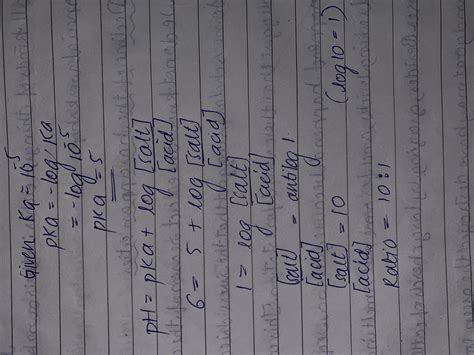 Given Ka = 10^-5
pKa = -log Ka
= -log 10^-5
pKa = 5
pH = pKa + log [salt]
[acid]
6 = 5 + log [salt]
[acid]
1 = log [salt]
[acid]
[salt] = antilog 1
[acid]
[salt] = 10 (log 10 = 1)
[acid]
Ratio = 10:1